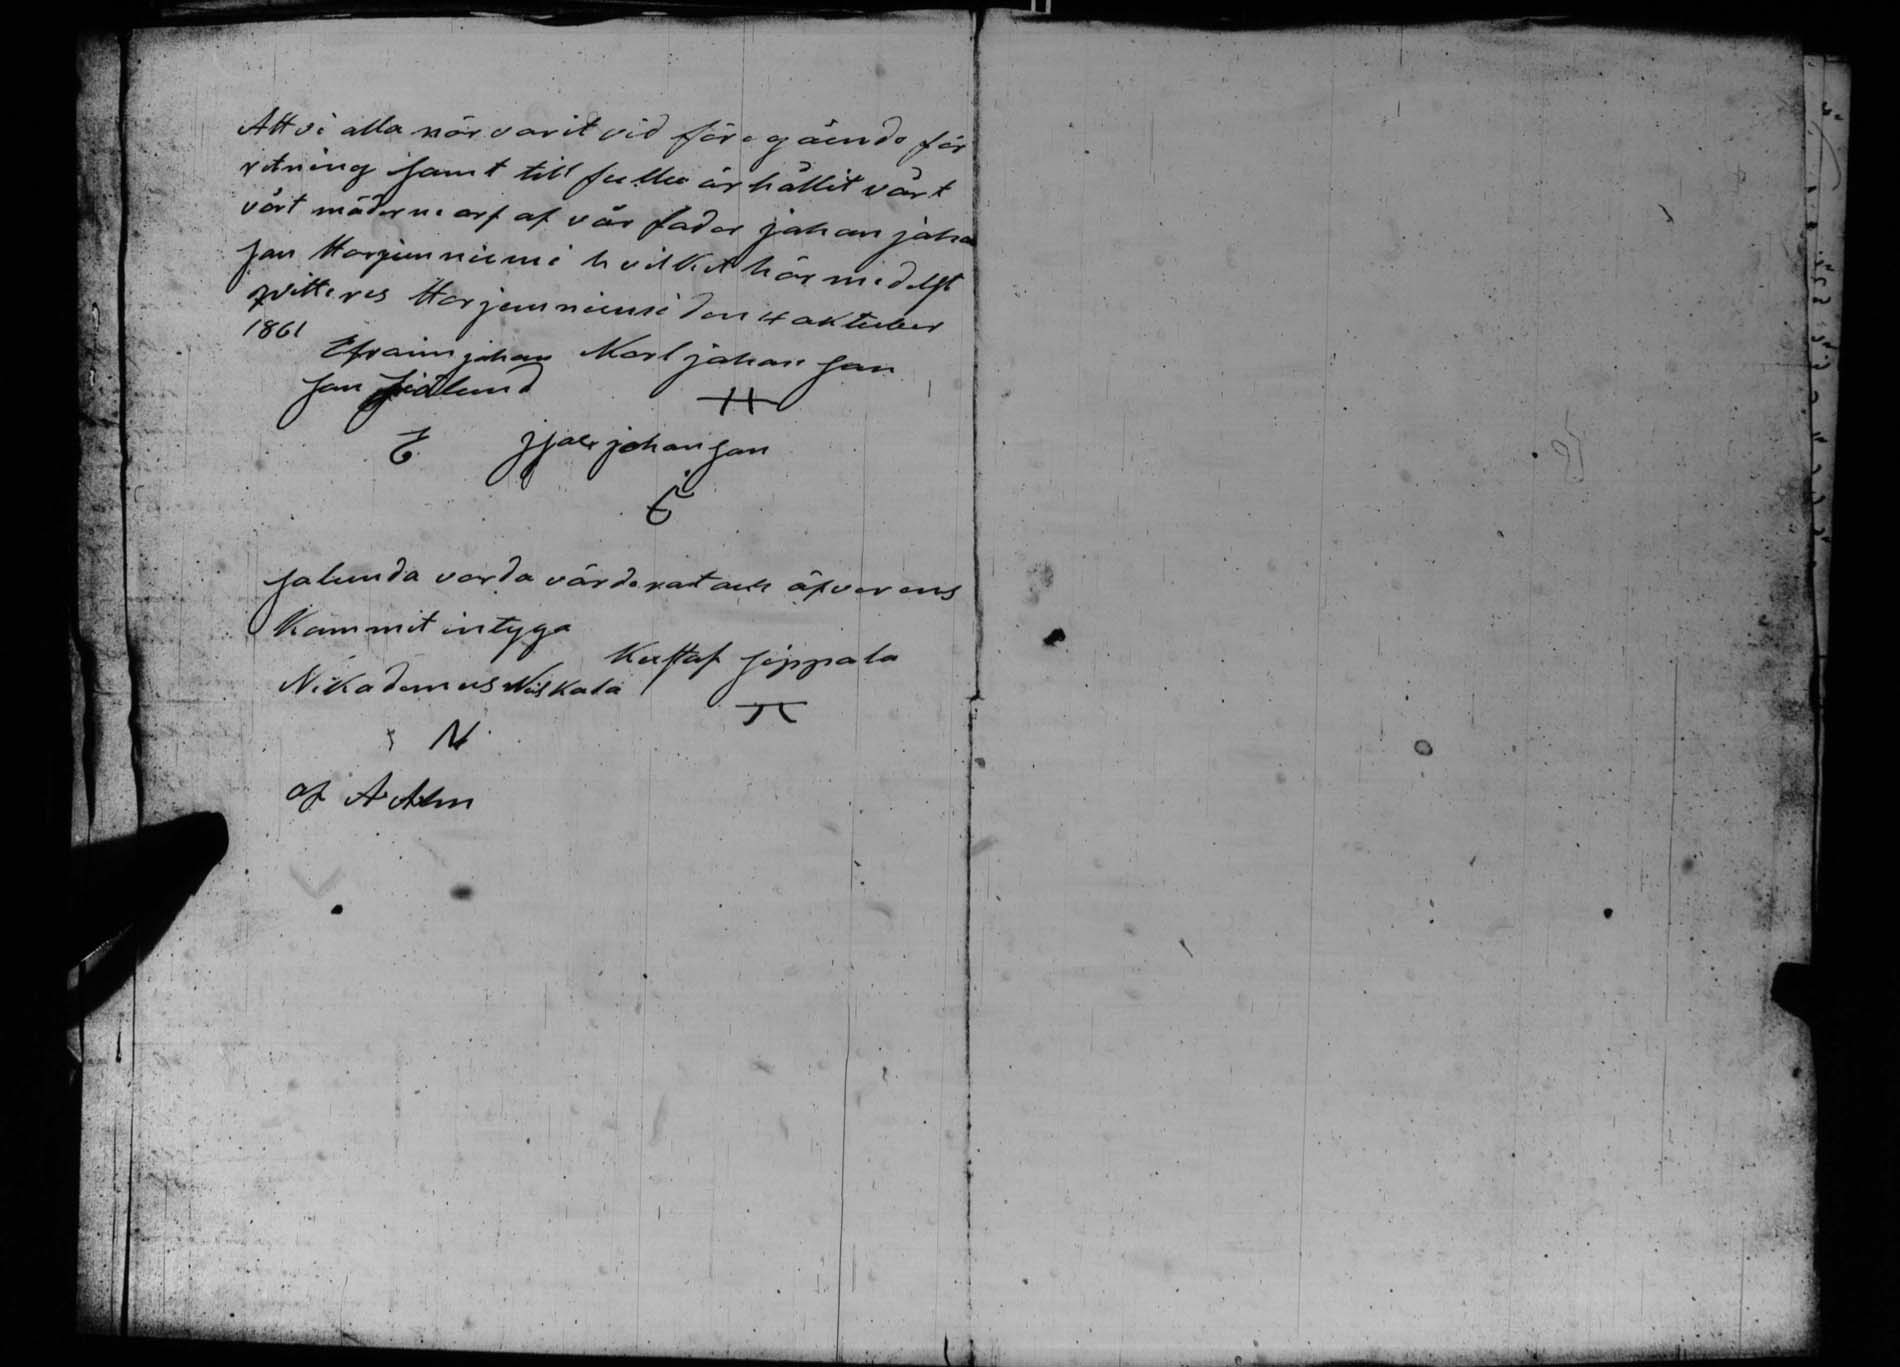 Att vi alla närvarit vid föregående för
retning samt till fullo ärhållit vårt
vårt möderne arf af vår fader johan joha
san Harjunniemi hvilket härmedelst
qvitteres Harjunniemi den 4 aktuber
1861
Efraim johan Karl johan san
san
H
E johan san
E
salunda varda värderat ach äfverens
kommit intyga
Kustaf sippala
Nikademus Niskala
N
af A Alm